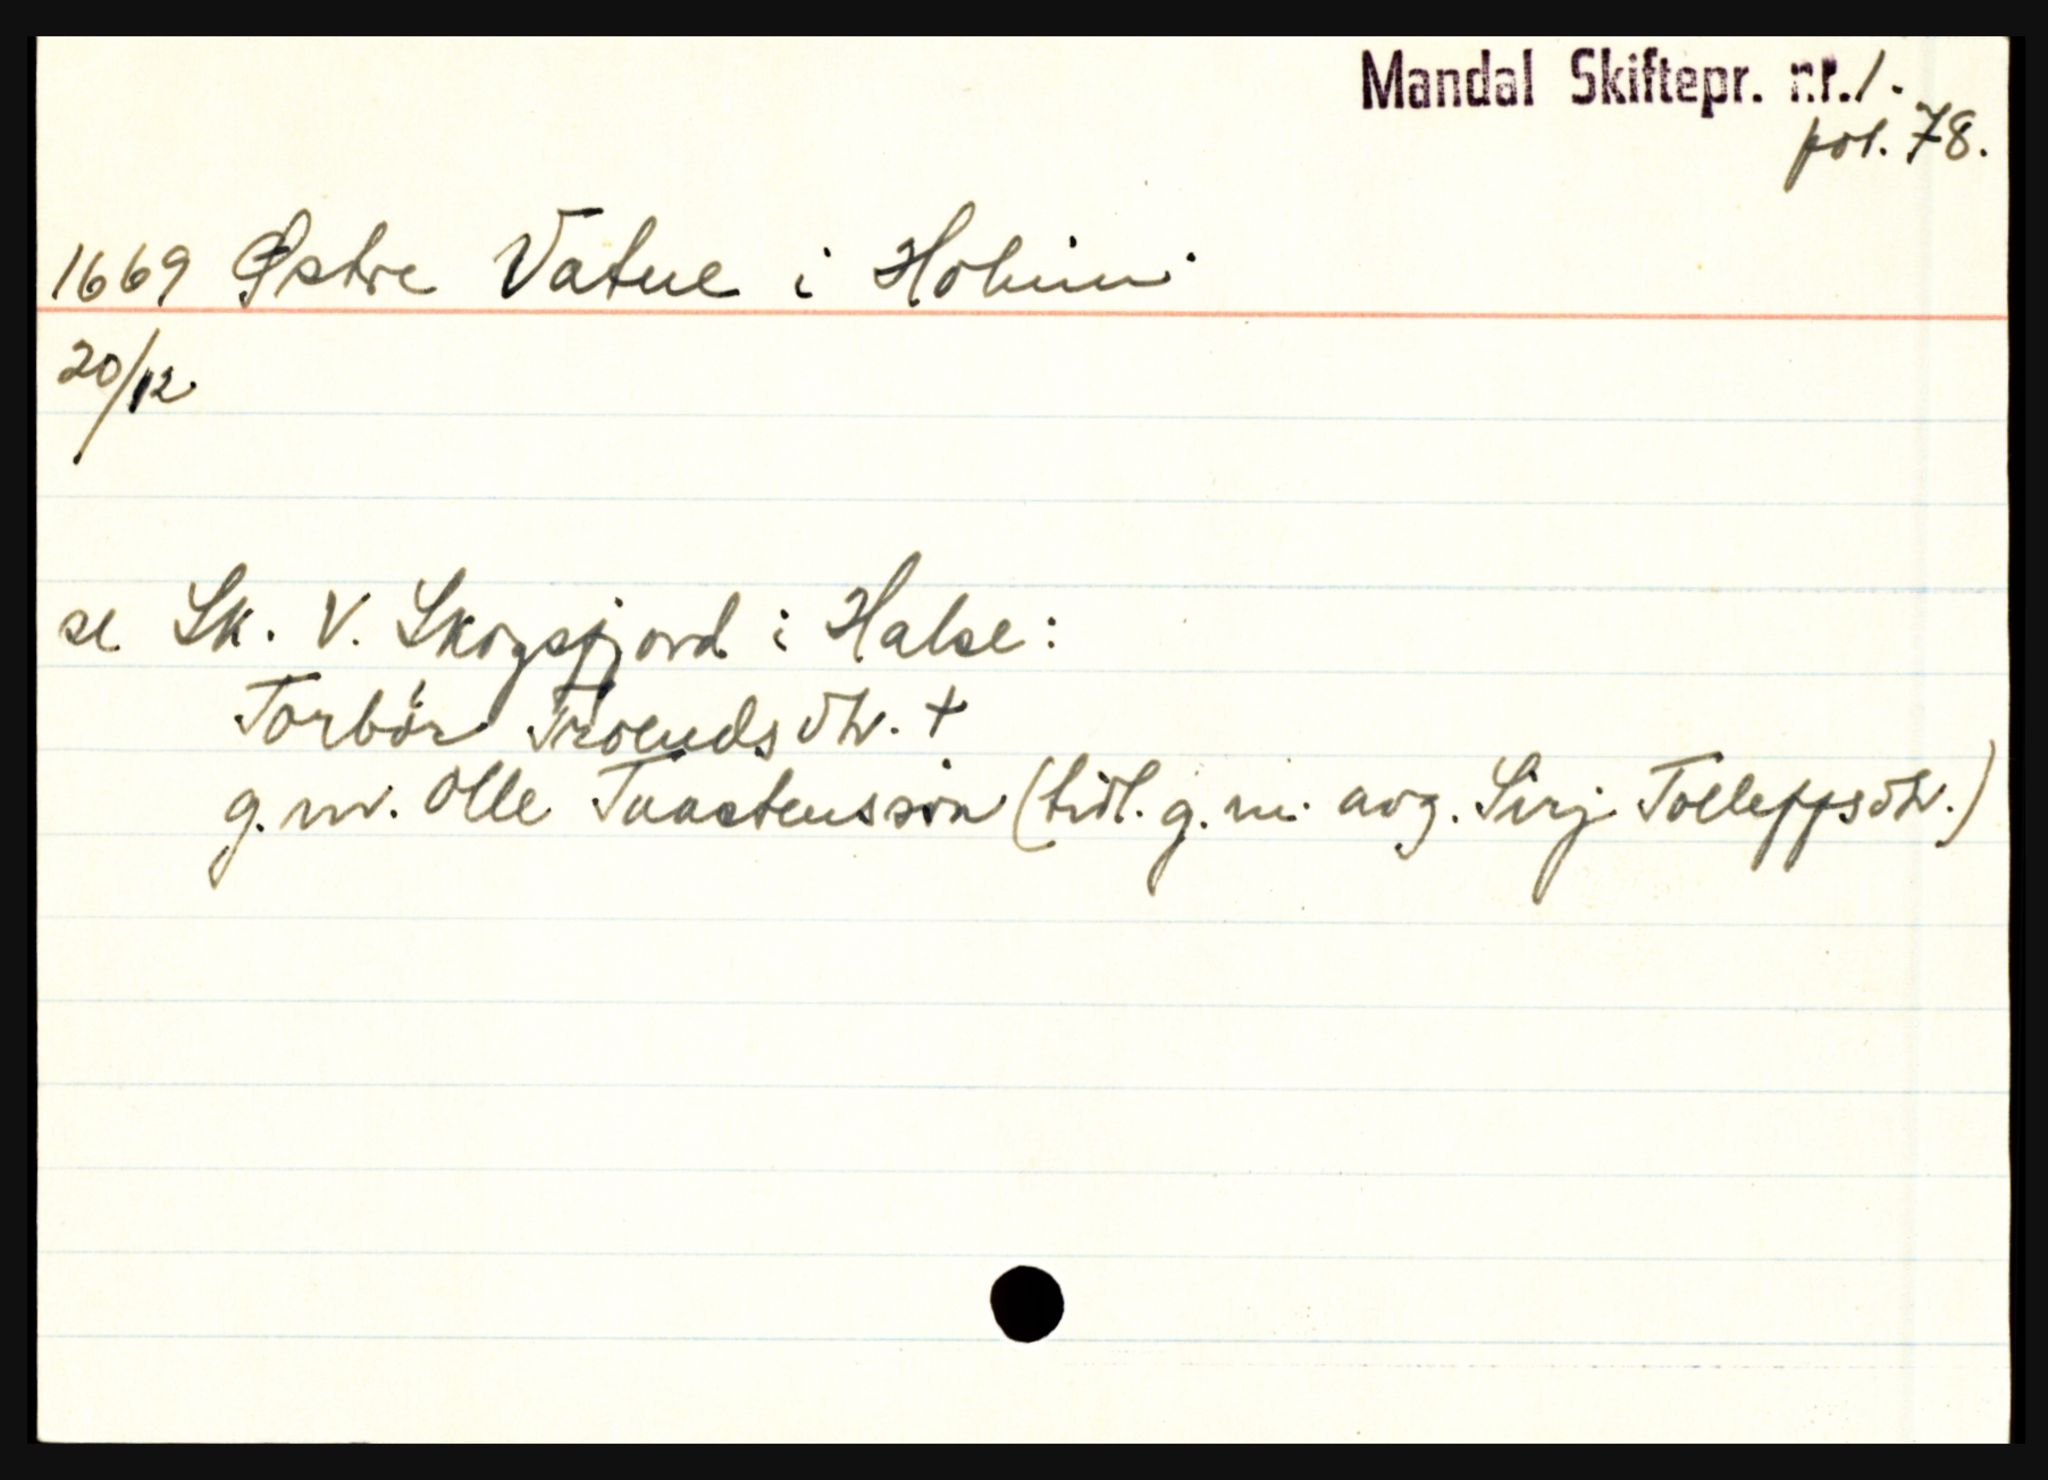 Mandal Skiftepr. nr. 1.
fol. 78.
1669 Østre Vatne i Holum.
20/12
se Sk. V. Skogsfjord i Halse:
Torbör Troendsdtr. +
g.m. Olle Taastensson (tidl. g. m. avg. Sirj Tolleffsdtr.)